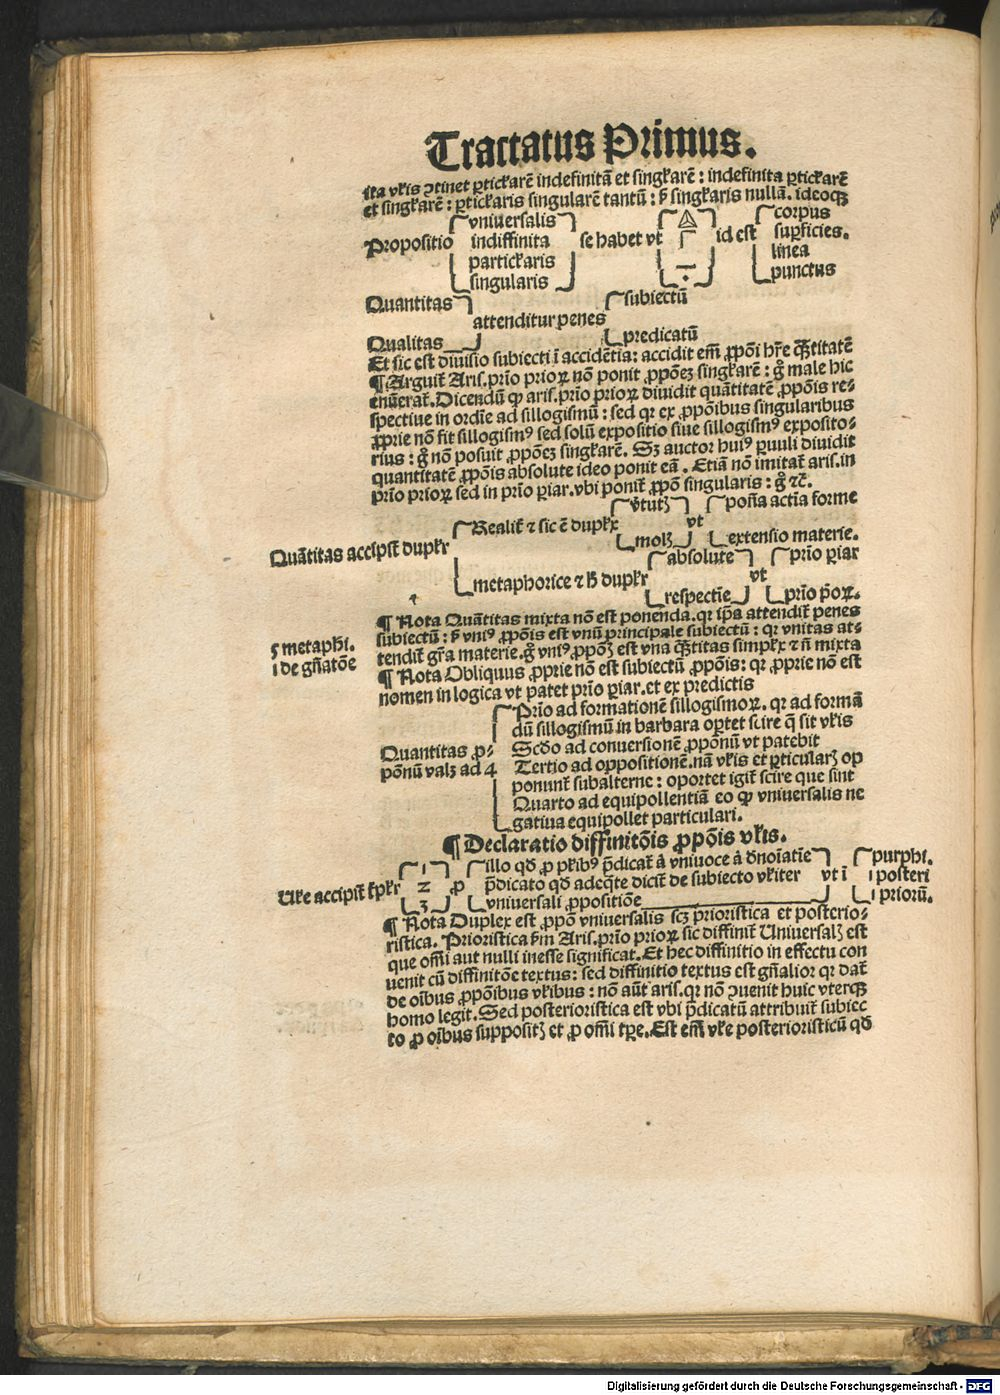 Tractatus Primus.
ita vƚis ɔtinet ꝑticƚarē indefinitā et singƚarē: indefinita ꝑticƚarē
et singƚarē: ꝑticƚaris singularē tantū: sꝫ singƚaris nullā. ideoqꝫ
Propositio
vniuersalis
indiffinita
particƚaris
singularis
se habet vt
id est
corpus
suꝑficies.
linea
punctus
Quantitas
Qualitas
attenditur penes
subiectū
predicatū
Et sic est diuisio subiecti ī accidētia: accidit em̄ ꝓpōi hr̄e qꝫtitatē
¶ Arguit᷑ Aris. prīo prioꝝ nō ponit ꝓpōeꝫ singƚarē: gͦ male hic
enūerat᷑. Dicendū ꝙ aris. prīo prioꝝ diuidit quātitatē ꝓpōis re-
spectiue in ordīe ad sillogismū: sed qꝛ ex ꝓpōibus singularibus
ꝓprie nō fit sillogismꝰ sed solū expositio siue sillogismꝰ exposito-
rius: gͦ nō posuit ꝓpōeꝫ singƚarē. Sꝫ auctor huiꝰ ꝑuuli diuidit
quantitatē ꝓpōis absolute ideo ponit eā. Etiā nō imitat᷑ aris. in
prīo prioꝝ sed in prīo ꝑiar. vbi ponit᷑ ꝓpō singularis: gͦ ⁊c̄.
Quātitas accipit᷑ dupƚr
Realit᷑ ⁊ sic ē dupƚx
v̄tutꝭ
molꝭ
vt
poña actia forme
extensio materie.
metaphorice ⁊ h̄ dupƚr
absolute
respectīe
vt
prīo ꝑiar
prīo p̄oꝝ.
¶ Nota Quātitas mixta nō est ponenda. qꝛ ip̄a attendit᷑ penes
subiectū: sꝫ vniꝰ ꝓpōis est vnū principale subiectū: qꝛ vnitas at-
tendit᷑ gr̄a materie. gͦ vniꝰ ꝓpōꝭ est vna qꝫtitas simpƚx ⁊ n̄ mixta
5 metaphi.
1 de gn̄atōe
¶ Nota Obliquus ꝓprie nō est subiectū ꝓpōis: qꝛ ꝓprie nō est
nomen in logica vt patet prīo ꝑiar. et ex predictis
Quantitas ꝓ-
pōnū valꝫ ad 4
Prīo ad formationē sillogismoꝝ. qꝛ ad formā
dū sillogismū in barbara oꝑtet scire q̄ sit vƚis
Scd̄o ad conuersionē ꝓpōnū vt patebit
Tertio ad oppositionē. nā vƚis et ꝑticularꝭ op
ponunt᷑ subalterne: oportet igit᷑ scire que sint
Quarto ad equipollentiā eo ꝙ vniuersalis ne
gatiua equipollet particulari.
¶ Declaratio diffinitōis ꝓpōis vƚis.
Vƚe accipit᷑ tƚpƚr
1
2
3
ꝓ
illo qd̄ ꝓ pƚibꝰ p̄dicat᷑ ā vniuoce ā d̄noīatīe
p̄dicato qd̄ adeq̄te dicit᷑ de subiecto vƚiter
vniuersali ꝓpositiōe
vt ī
purphi.
1 posteri
1 priorū.
¶ Nota Duplex est ꝓpō vniuersalis scꝫ prioristica et posterio-
ristica. Prioristica s̄m Aris. prīo prioꝝ sic diffinit᷑ Uniuersalꝭ est
que om̄i aut nulli inesse significat. Et hec diffinitio in effectu con
uenit cū diffinitōe textus: sed diffinitio textus est gn̄alior qꝛ dat᷑
de oībus ꝓpōibus vƚibus: nō aūt aris. qꝛ nō ɔuenit huic vterqꝫ
homo legit. Sed posterioristica est vbi p̄dicatū attribuit᷑ subiec
to ꝓ oībus suppositꝭ et ꝓ om̄i tꝑe. Est em̄ vƚe posterioristicū qd̄
Digitalisierung gefördert durch die Deutsche Forschungsgemeinschaft - DFG